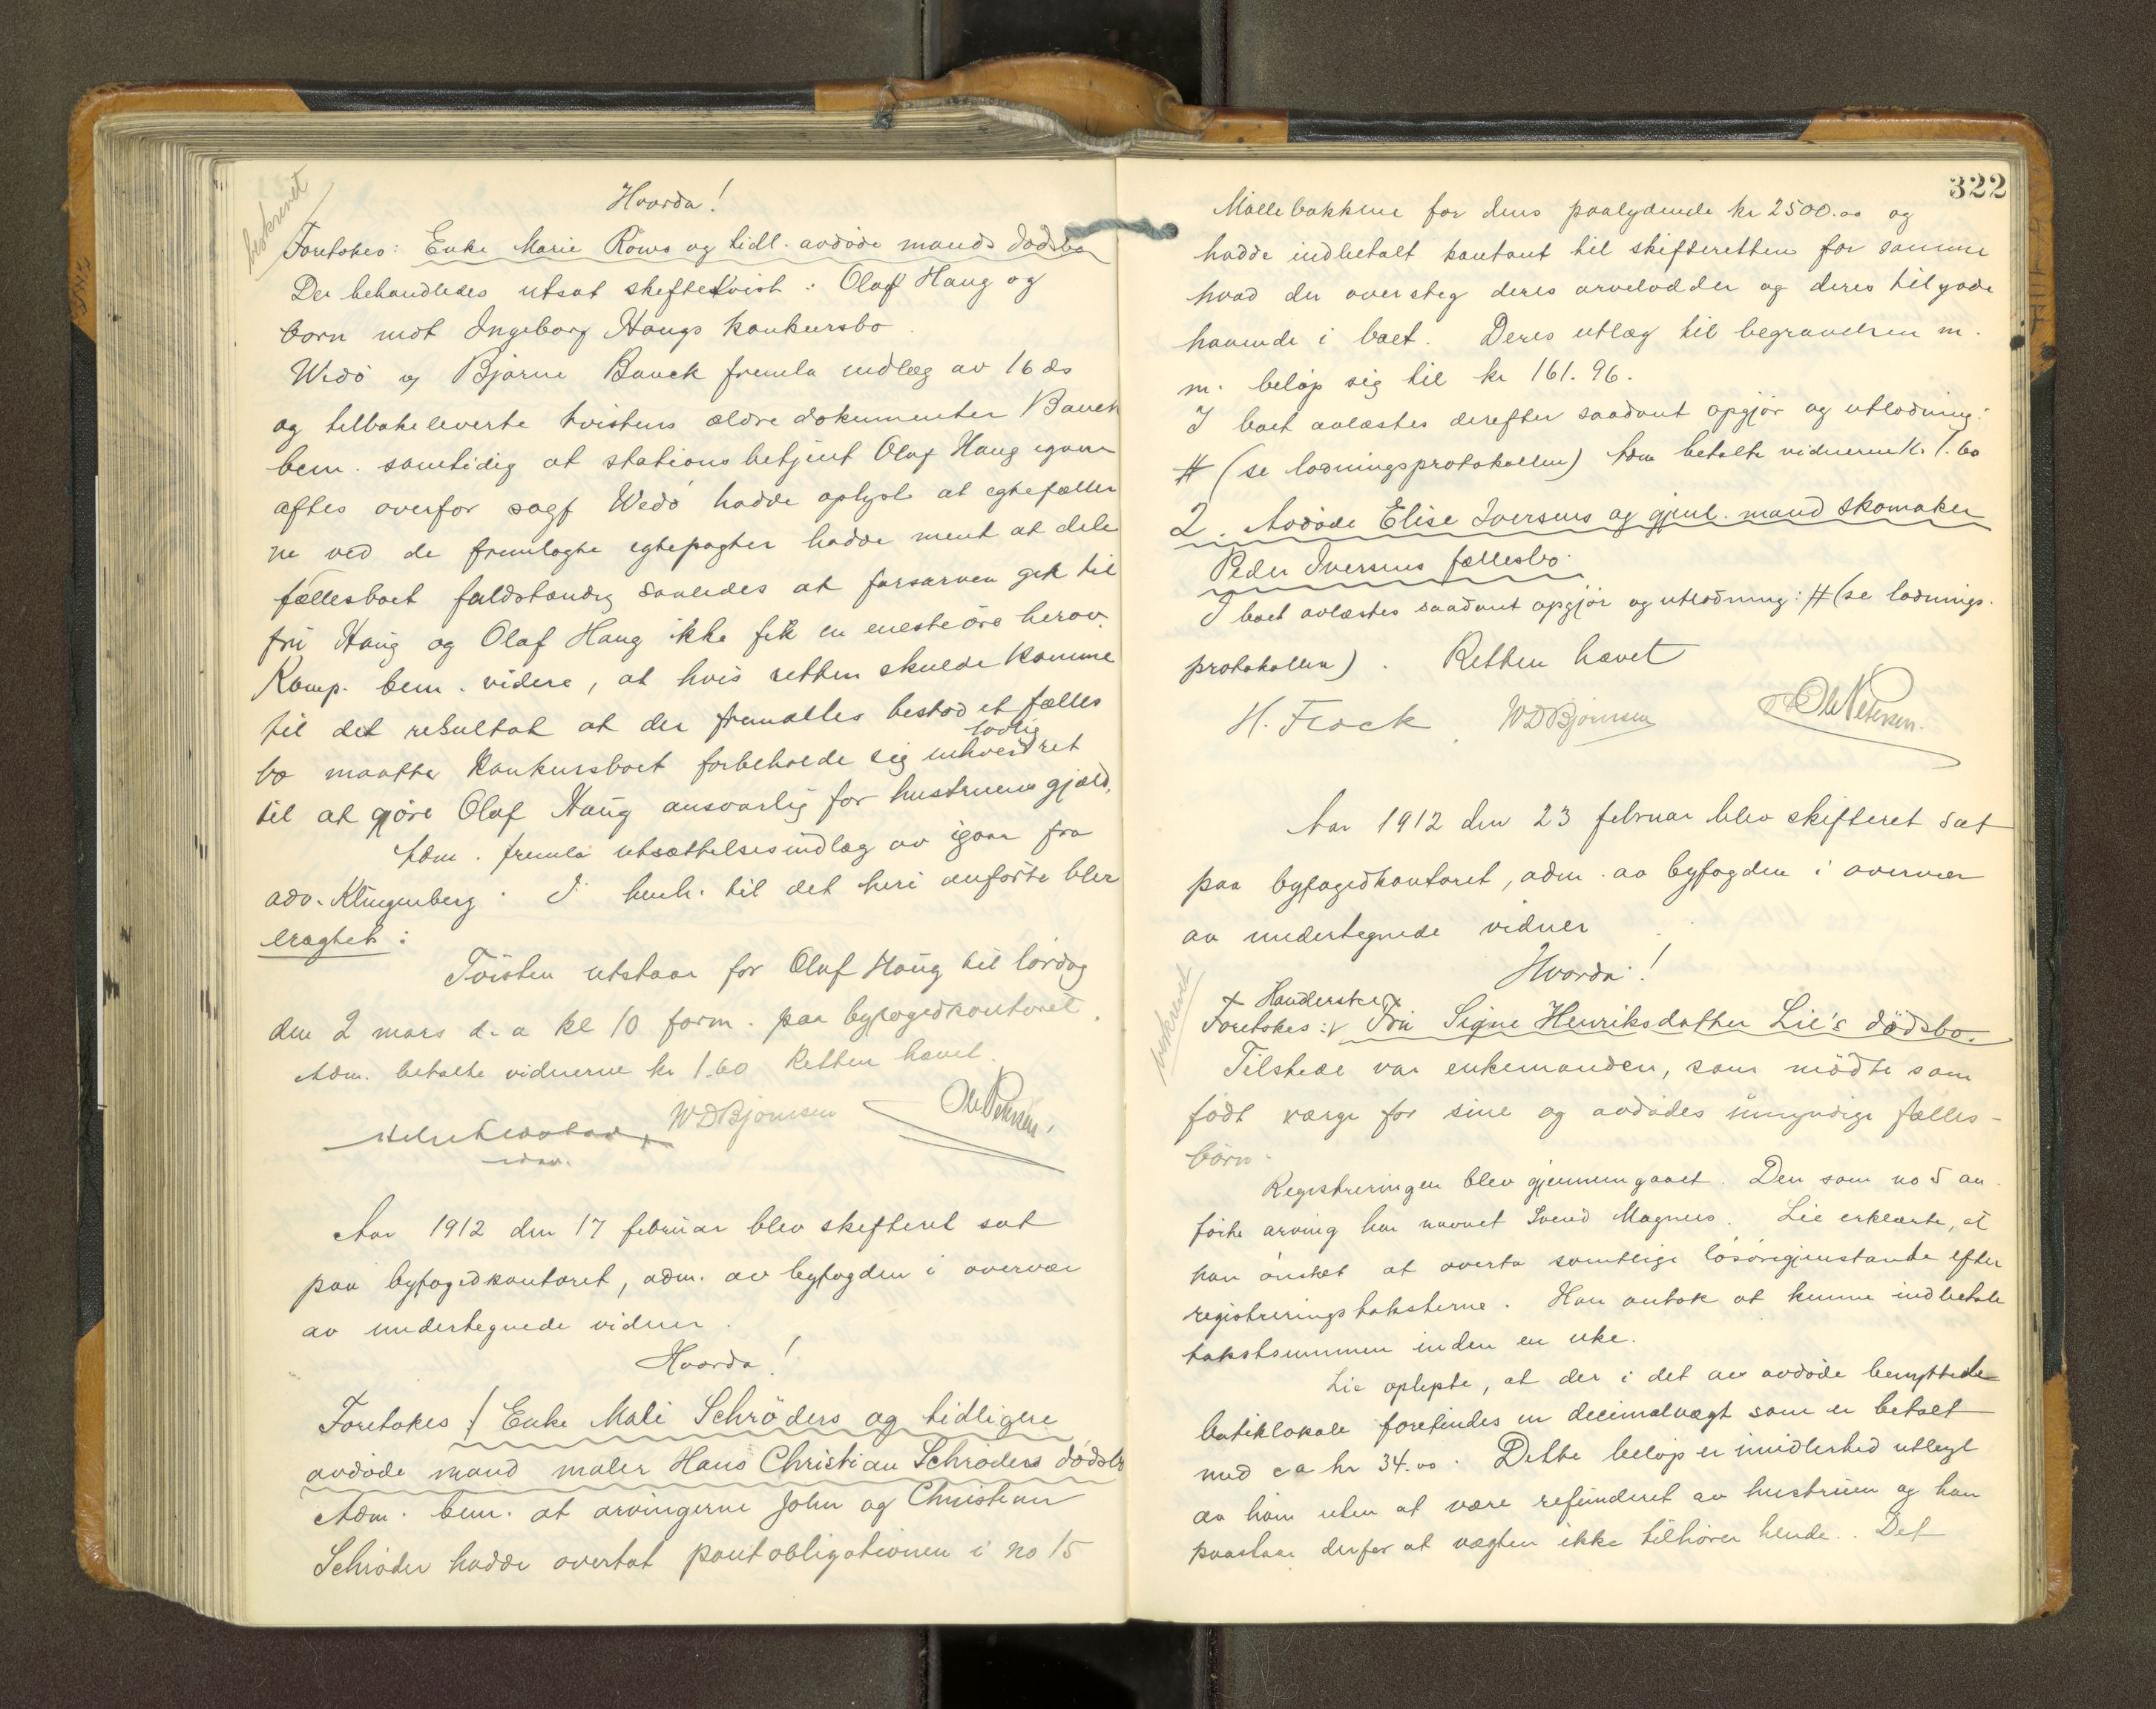 beskrevet
Hvorda!
Foretokes: Enke Marie Röws og tidl. avdöde mands dödsbo
Der behandledes utsat skiftetvist: Olaf Haug og
born mot Ingeborg Haugs konkursbo.
Wedö og Bjarne Bauck fremla indlæg av 16 ds
og tilbakeleverte tvistens ældre dokumenter Bauck
bem. samtidig at stationsbetjent Olaf Haug igaar
aftes overfor sagf Wedö hadde oplyst at egtefæller
ne ved de fremlagte egtepagter hadde ment at dele
fællesboet fuldstændig saaledes at farsarven gik til
fru Haug og Olaf Haug ikke fik en eneste öre herav.
Komp. bem. videre, at hvis retten skulde komme
til det resultat at der fremdeles bestod et fælles
bo maatte konkursboet forbeholde sig enhver lovlig ret
til at gjöre Olaf Haug ansvarlig for hustruens gjæld.
Adm. fremla utsættelsesindlæg av igaar fra
adv. Klingenberg. I henh. til det heri anförte blev
eragtet:
Tvisten utstaar for Olaf Haug til lördag
den 2 mars d. a kl 10 form. paa byfogedkontoret.
Adm. betalte vidnerne kr 1.60 Retten hævet.
WDBjörnsen Ole Petersen
Aar 1912 den 17 februar blev skifteret sat
paa byfogedkontoret, adm. av byfogden i overvær
av undertegnede vidner.
Hvorda!
Foretokes 1/ Enke Mali Schröders og tidligere
avdöde mand maler Hans Christian Schröders dödsbo
Adm. bem. at arvingerne John og Christian
Schröder hadde overtat pantobligationen i no 15
322
Möllebakken for dens paalydende kr 2500.00 og
hadde indbetalt kontant til skifteretten for samme
hvad der oversteg deres arvelodder og deres tilgode
havende i boet. Deres utlæg til begravelsen m.
m. belöp sig til kr 161.96.
I boet avlæstes derefter saadant opgjör og utlodning:
# (se lodningsprotokollen) Adm betalte vidnerne kr. 1.60
2. Avdöde Elise Iversens og gjenl. mand skomaker
Peder Iversens fællesbo.
I boet avlæstes saadant opgjör og utlodning: # (se lodnings-
protokollen). Retten hævet
H. Frock. WDBjörnsen Ole Petersen.
Aar 1912 den 23 februar blev skifteret sat
paa byfogedkontoret, adm. av byfogden i overvær
av undertegnede vidner
Hvorda!
beskrevet
Foretokes: Handlerske Fru Signe Henriksdatter Lie's dödsbo.
Tilstede var enkemanden, som mödte som
födt værge for sine og avdödes umyndige fælles-
börn.
Registreringen blev gjennemgaaet. Den som no 5 an
förte arving har navnet Svend Magnus. Lie erklærte, at
han önsket at overta samtlige lösöregjenstande efter
registreringstaksterne. Han antok at kunne indbetale
takstsummen inden en uke.
Lie oplyste, at der i det av avdöde benyttede
butiklokale forefindes en decimalvegt som er betalt
med ca kr 34.00. Dette belöp er imidlertid utlegt
av ham uten at være refunderet av hustruen og han
paastaar derfor at vægten ikke tilhörer hende. Det